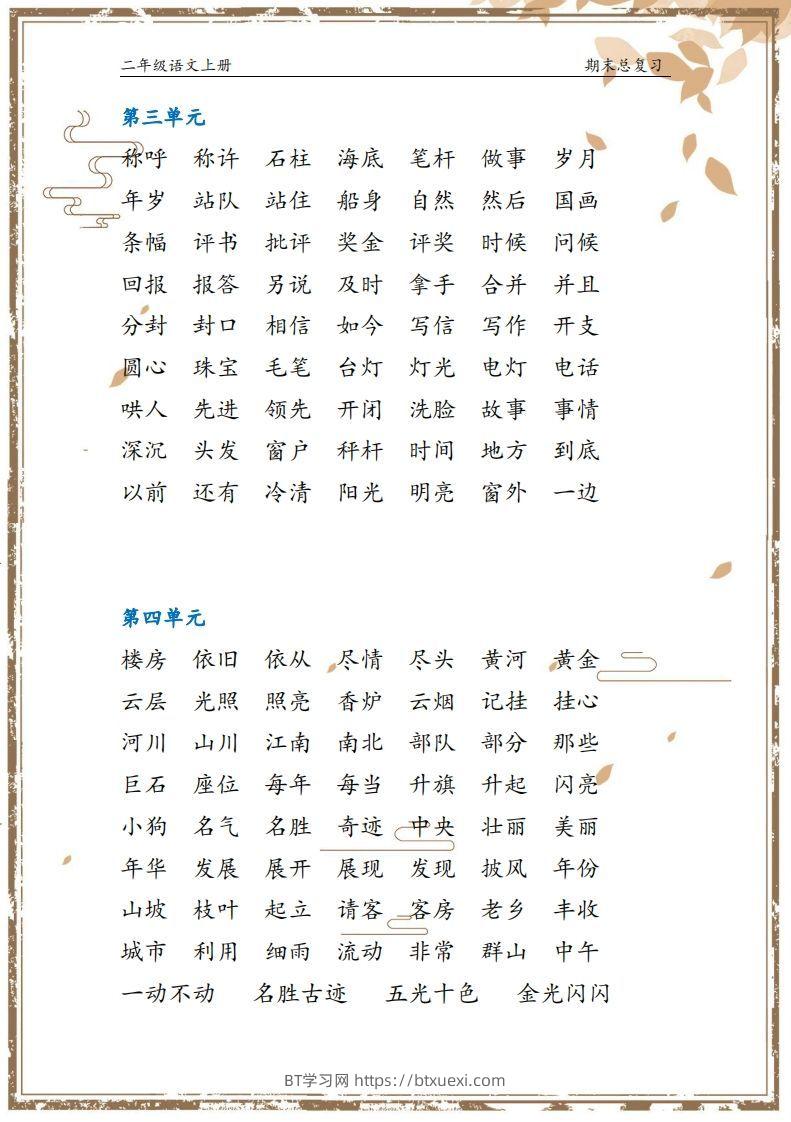 二年级语文上册 期末总复习
第三单元
称呼 称许 石柱 海底 笔杆 做事 岁月
年岁 站队 站住 船身 自然 然后 国画
条幅 评书 批评 奖金 评奖 时候 问候
回报 报答 另说 及时 拿手 合并 并且
分封 封口 相信 如今 写信 写作 开支
圆心 珠宝 毛笔 台灯 灯光 电灯 电话
哄人 先进 领先 开闭 洗脸 故事 事情
深沉 头发 窗户 秤杆 时间 地方 到底
以前 还有 冷清 阳光 明亮 窗外 一边
第四单元
楼房 依旧 依从 尽情 尽头 黄河 黄金
云层 光照 照亮 香炉 云烟 记挂 挂心
河川 山川 江南 南北 部队 部分 那些
巨石 座位 每年 每当 升旗 升起 闪亮
小狗 名气 名胜 奇迹 中央 壮丽 美丽
年华 发展 展开 展现 发现 披风 年份
山坡 枝叶 起立 请客 客房 老乡 丰收
城市 利用 细雨 流动 非常 群山 中午
一动不动 名胜古迹 五光十色 金光闪闪
BT学习网 https://btxuexi.com